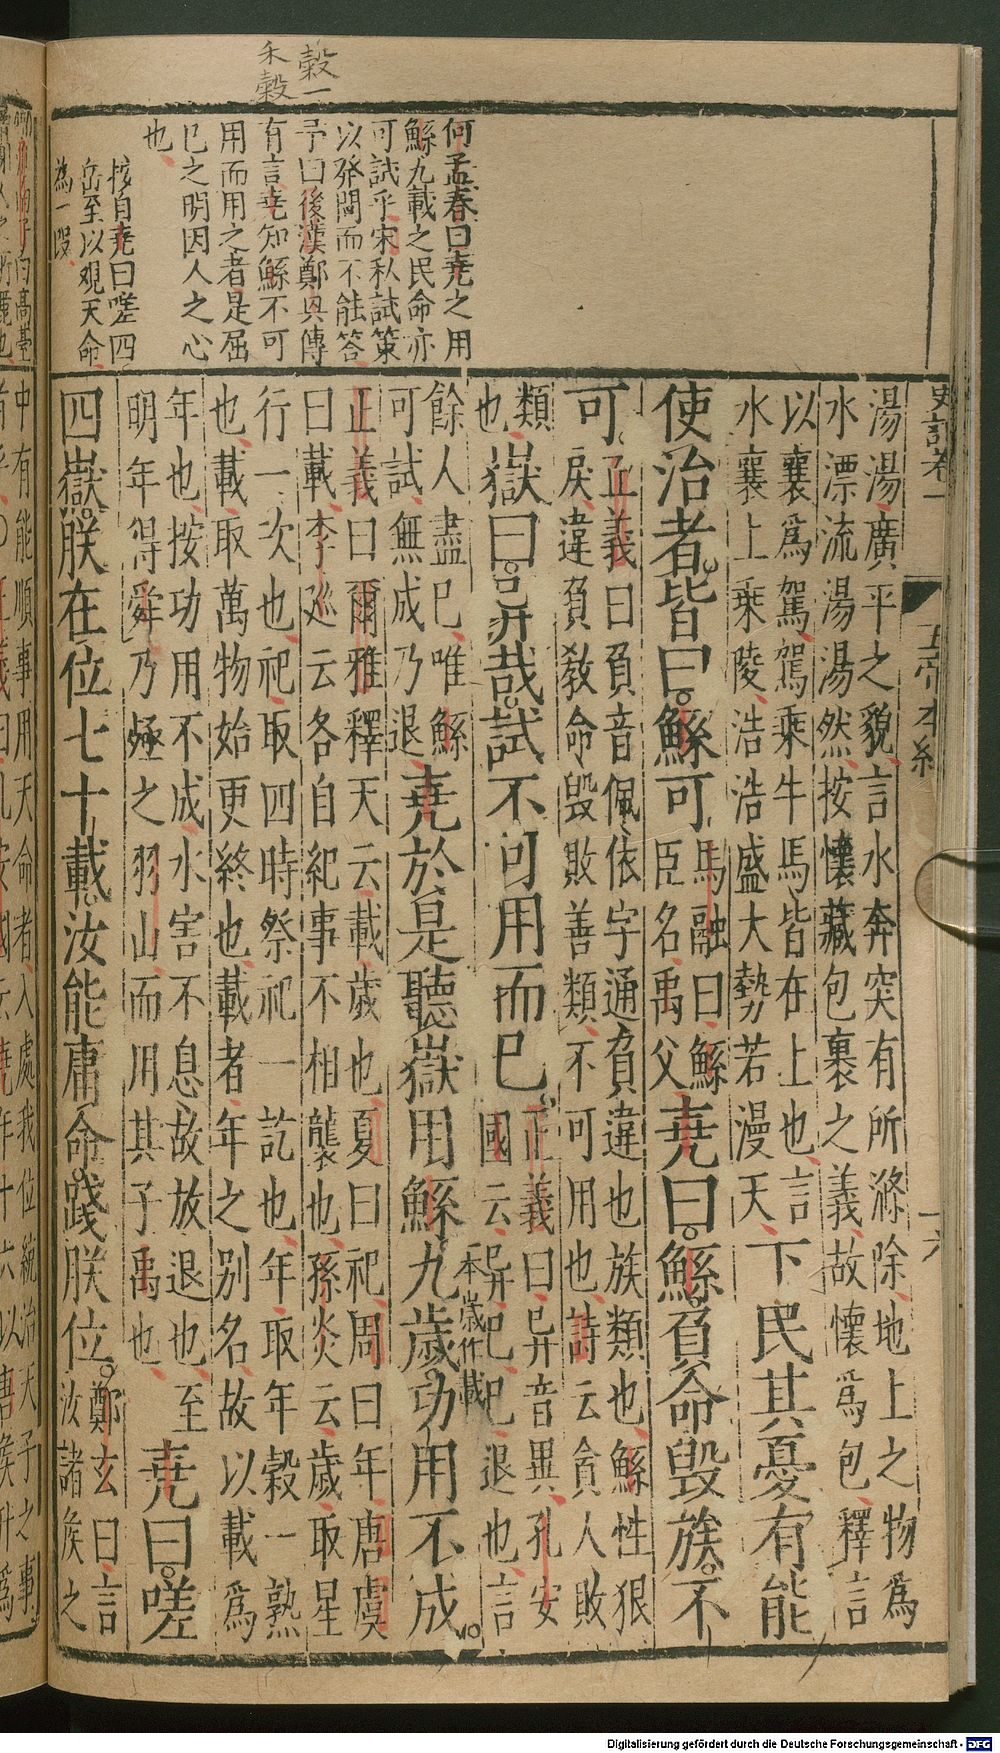 穀一
禾穀
何孟春曰堯之用
鯀九載之民命亦
可試乎宋私試策
以發問而不能答
予曰後漢鄭興傳
有言堯知鯀不可
用而用之者是屈
巳之明因人之心
也
按自堯曰嗟四
岳至以觀天命
為一段
史記卷一
五帝本紀
十六
湯湯廣平之貌言水奔突有所滌除地上之物為
水漂流湯湯然按懷藏包裹之義故懷為包釋言
以襄為駕駕乘牛馬皆在上也言
水襄上乗陵浩浩盛大勢若漫天
下民其憂有能
使治者皆曰鯀可
馬融曰鯀
臣名禹父
堯曰鯀負命毀族不
可
正義曰負音佩依字通負違也族類也鯀性狠
戾違負教命毀敗善類不可用也詩云貪人敗
類
也
嶽曰异哉試不可用而已
正義曰异音異孔安
國云异巳巳退也言
餘人盡巳唯鯀
可試無成乃退
堯於是聽嶽用鯀九歲功用不成
本歲作載
正義曰爾雅釋天云載歲也夏曰祀周曰年唐虞
曰載李巡云各自紀事不相襲也孫炎云歲取星
行一次也祀取四時祭祀一訖也年取年穀一熟
也載取萬物始更終也載者年之別名故以載為
年也按功用不成水害不息故放退也至
明年得舜乃殛之羽山而用其子禹也
堯曰嗟
四嶽朕在位七十載汝能庸命踐朕位
鄭玄曰言
汝諸侯之
中有能順事用天命者入處我位統治天子之事
Digitalisierung gefördert durch die Deutsche Forschungsgemeinschaft - DFG